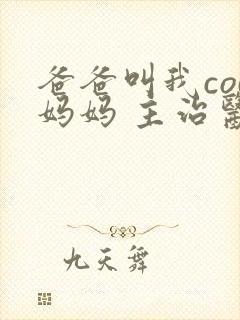 爸爸叫我co
妈妈 主治
九天舞